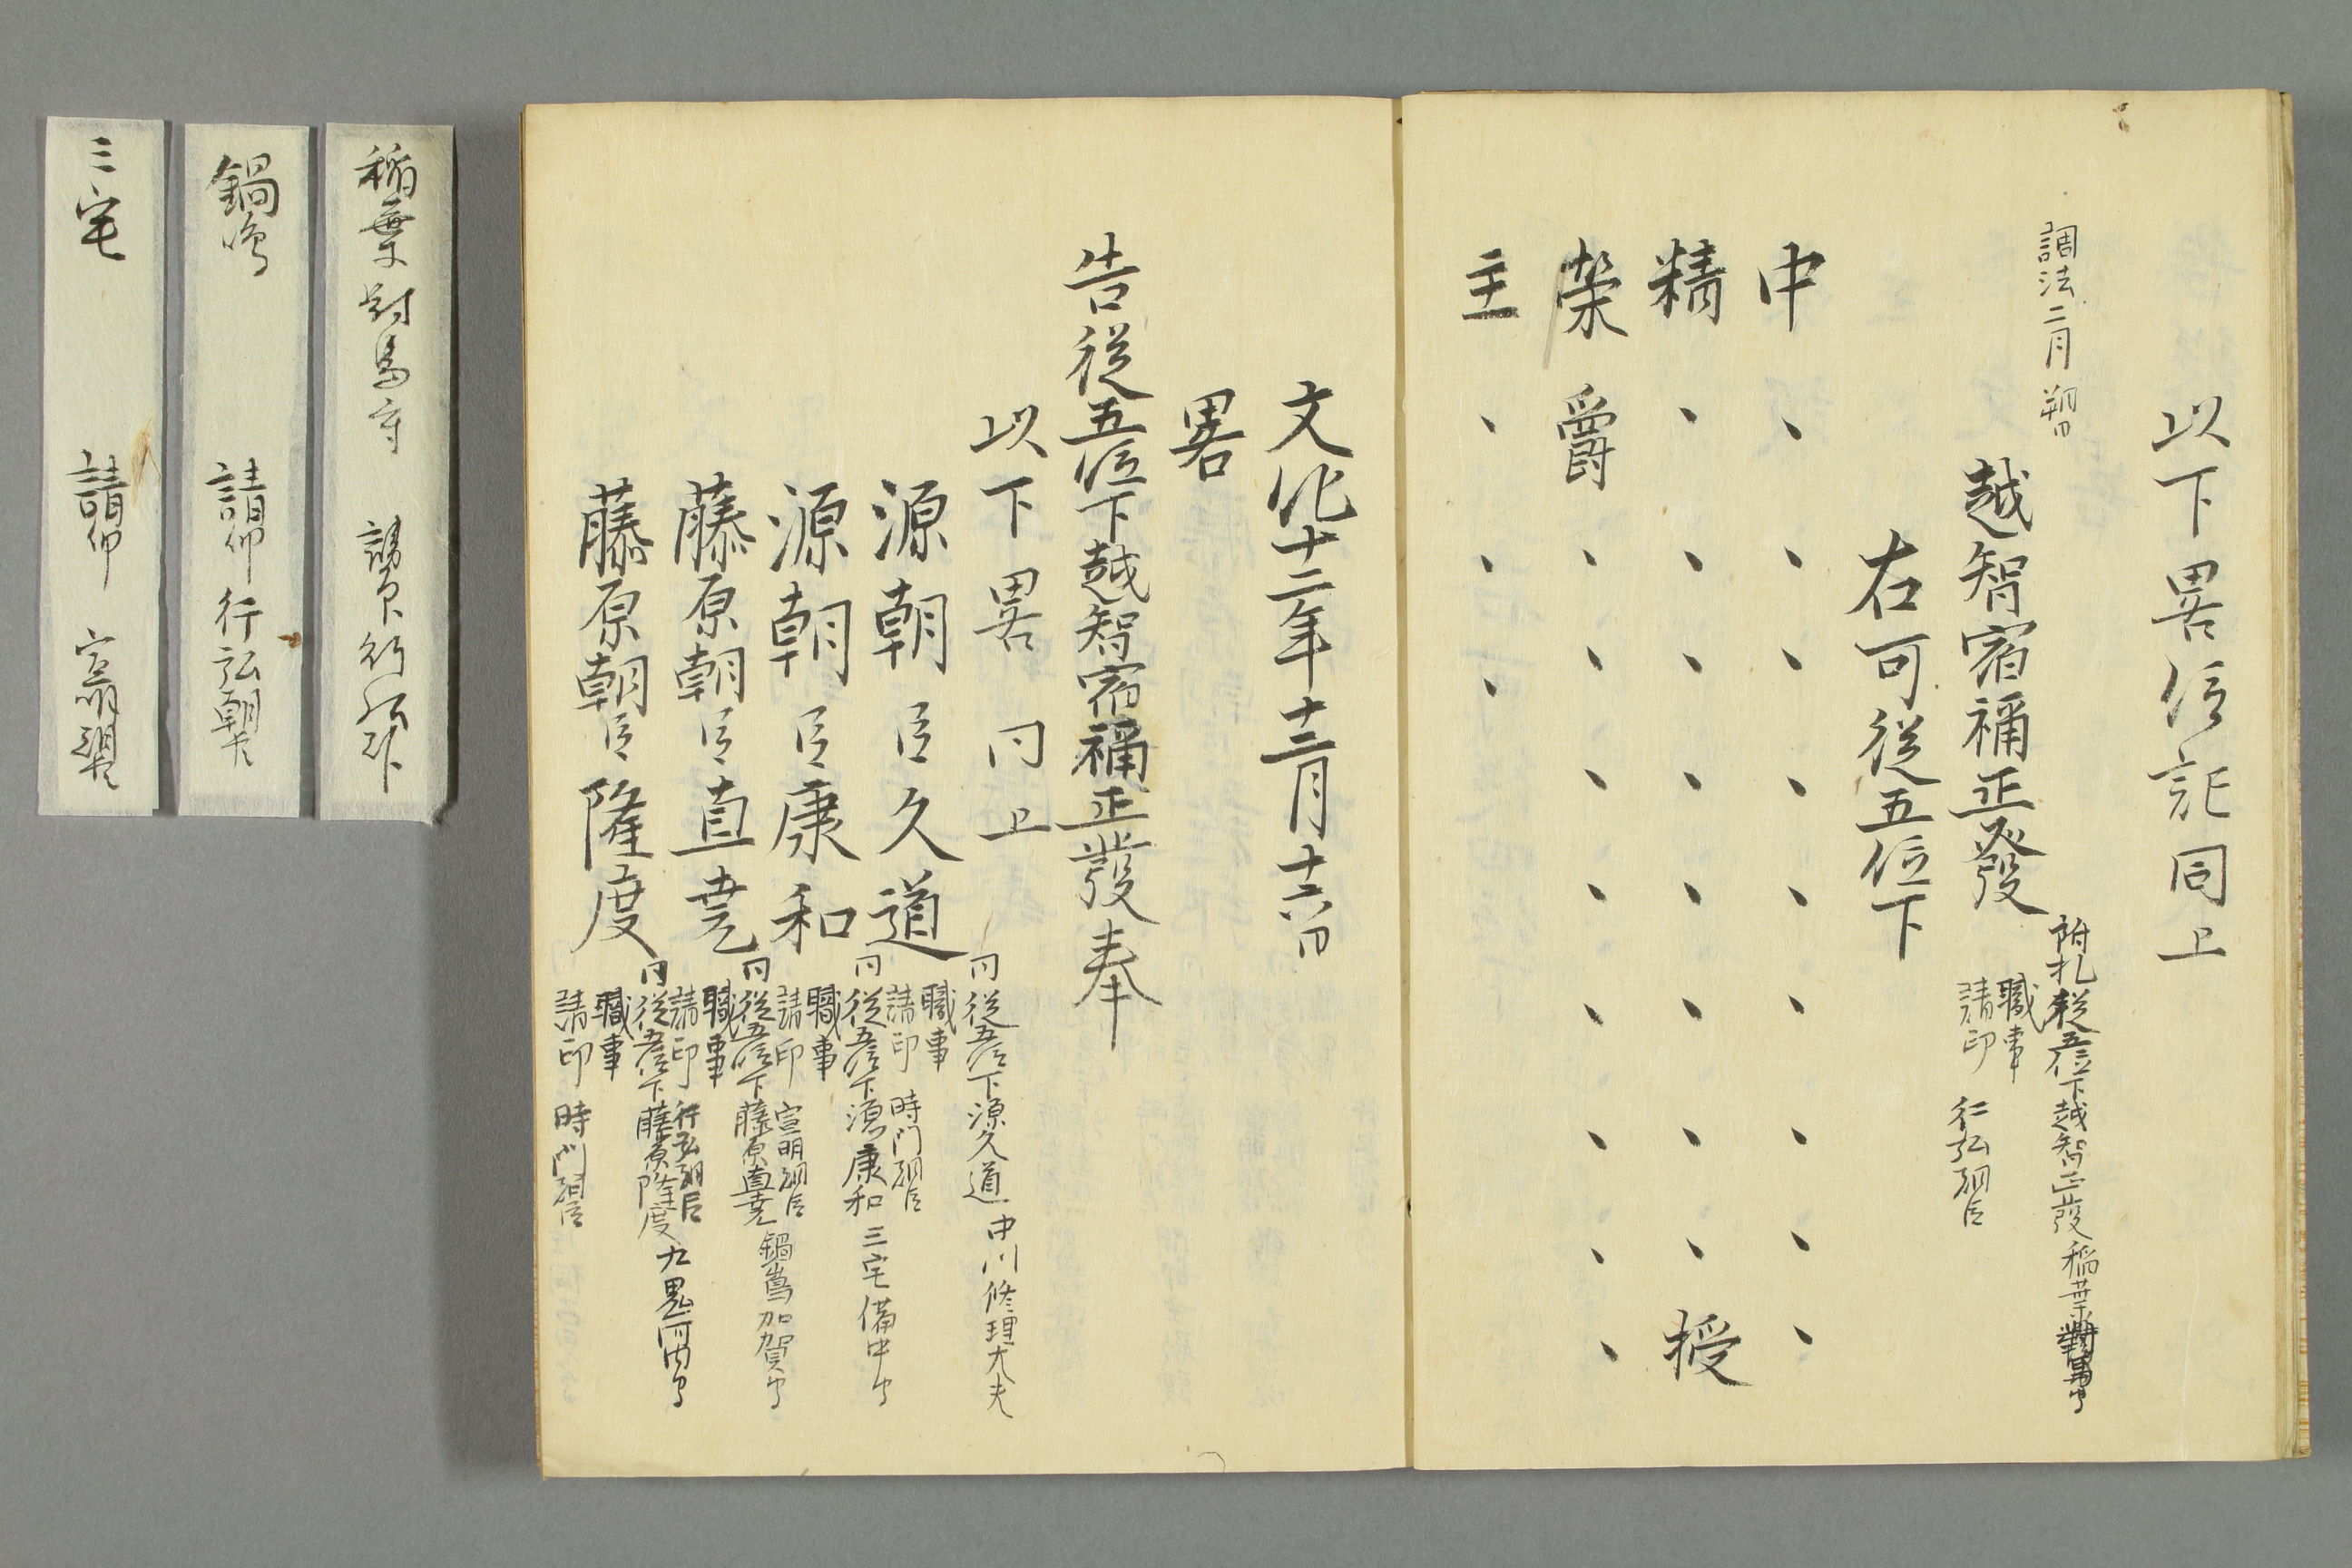 以下畧位記同上
調法二月朔日
越智宿祢正發
附札従五位下越智正發 稲葉對馬守
職事
請印 行弘朝臣
右可従五位下
中、、、、、、、、、
精、、、、、、、授
榮爵、、、、、、、、
主、、、
文化十二年十二月十六日
畧
告従五位下越智宿祢正發奉
以下畧同上
源朝臣久道
同従五位下源久道 中川修理大夫
職事
請印 時門朝臣
源朝臣康和
同従五位下源康和 三宅備中守
職事
請印 宣明朝臣
藤原朝臣直堯
同従五位下藤原直堯 鍋嶌加賀守
職事
請印 行弘朝臣
藤原朝臣隆度
同従五位下藤原隆度 九鬼河内守
職事
請印 時門朝臣
稲葉對馬守 請印 行弘朝臣
鍋嶋 請印 行弘朝臣
三宅 請印 宣明朝臣